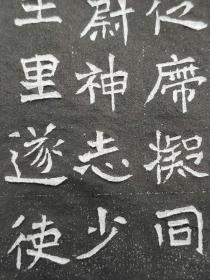 席擬同
尉神志少
里遂使